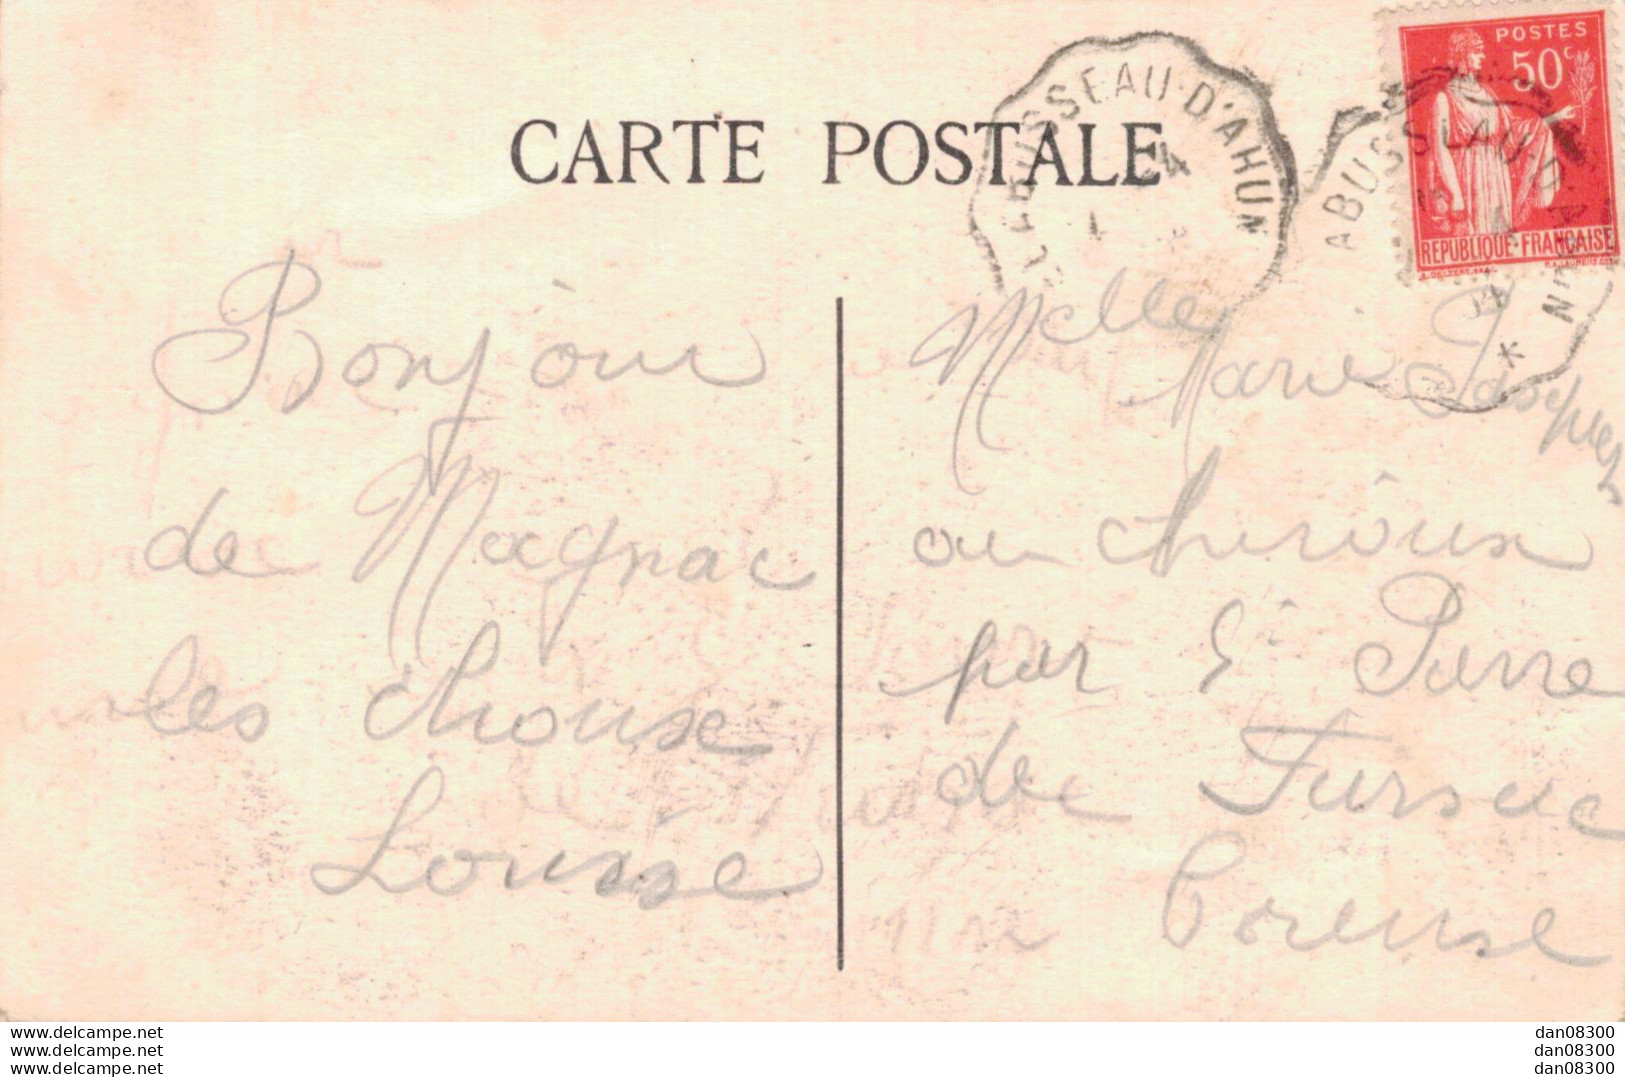 CARTE POSTALE
BUSSEAU-D'AHUN
POSTES
50c
REPUBLIQUE-FRANÇAISE
Bonjour
de Magnac
les choux
Louise
Melle Marie
au chiroux
par St Pierre
de Fursac
Creuse
www.delcampe.net
www.delcampe.net
www.delcampe.net
dan08300
dan08300
dan08300